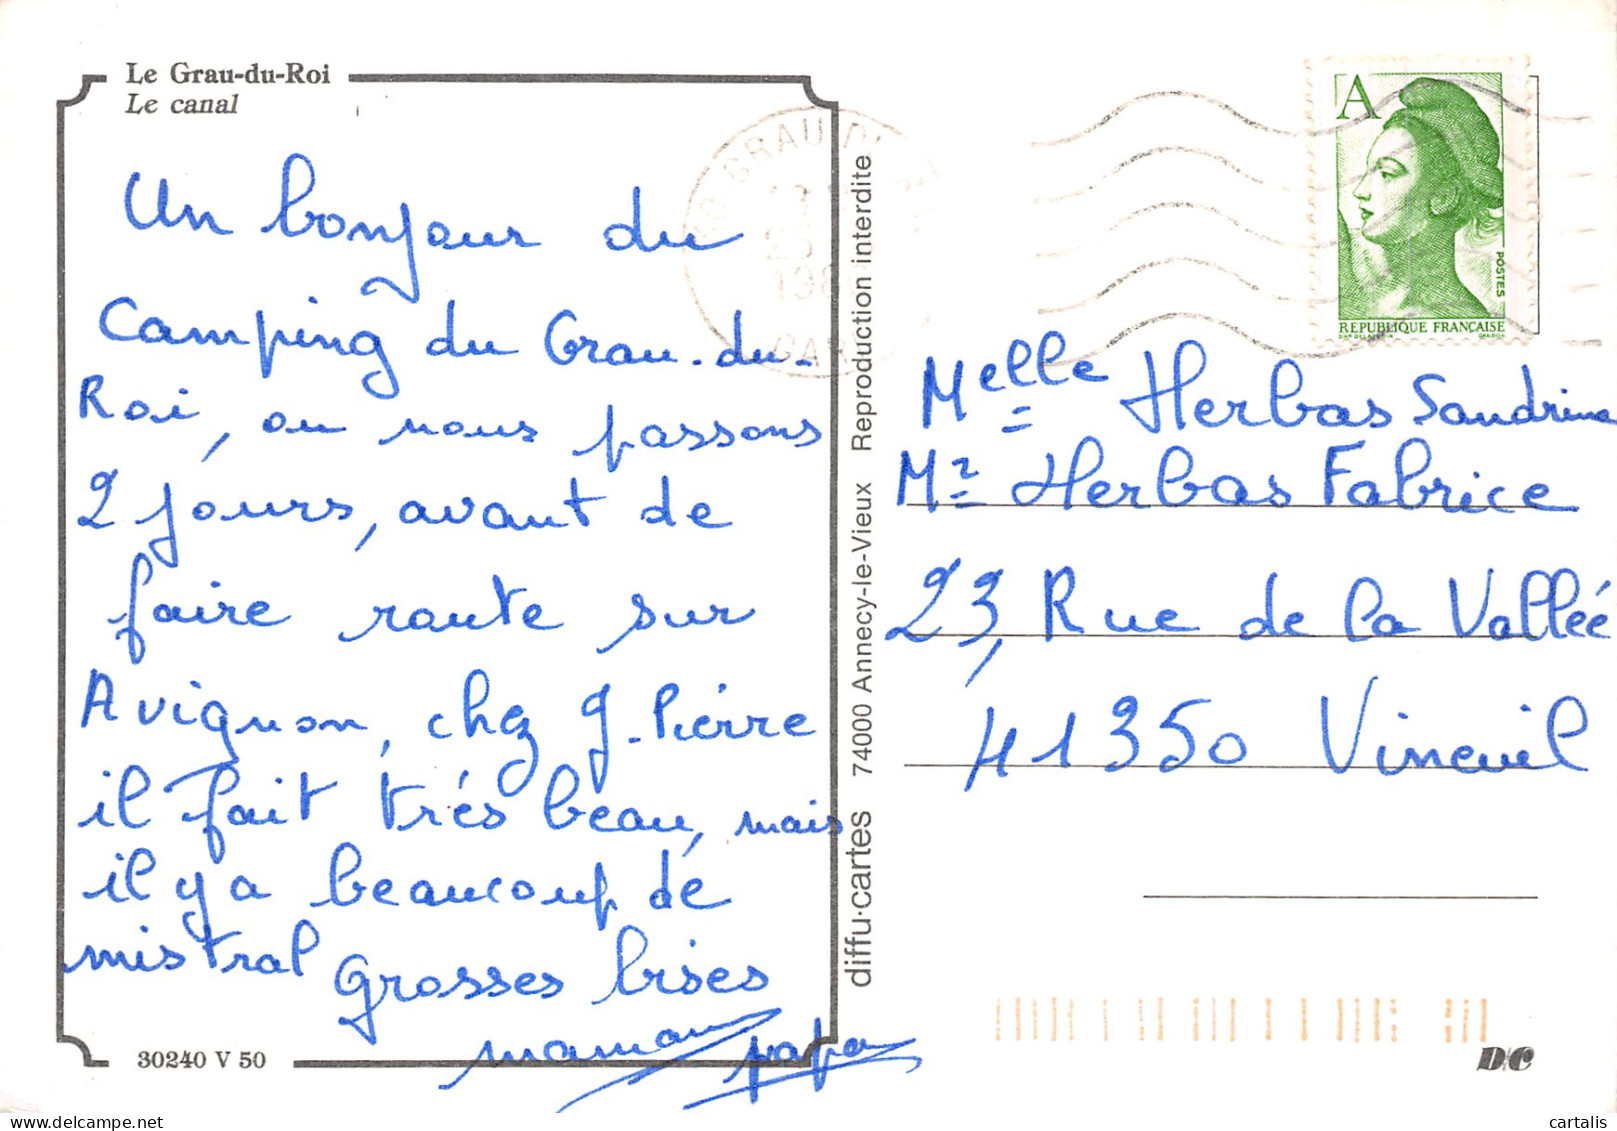 Le Grau-du-Roi
Le canal
Un bonjour du
Camping du Grau-du-
Roi, ou nous passons
2 jours, avant de
faire route sur
Avignon, chez J-Pierre
il fait trés beau, mais
il y a beaucoup de
mistral Grosses bises
maman papa
30240 V 50
diffu·cartes 74000 Annecy-le-Vieux Reproduction interdite
GRAU DU
A
POSTES
REPUBLIQUE FRANÇAISE
Melle Herbas Sandrine
Mr Herbas Fabrice
23, Rue de la Valleé
41350 Vineuil
D/C
cartalis